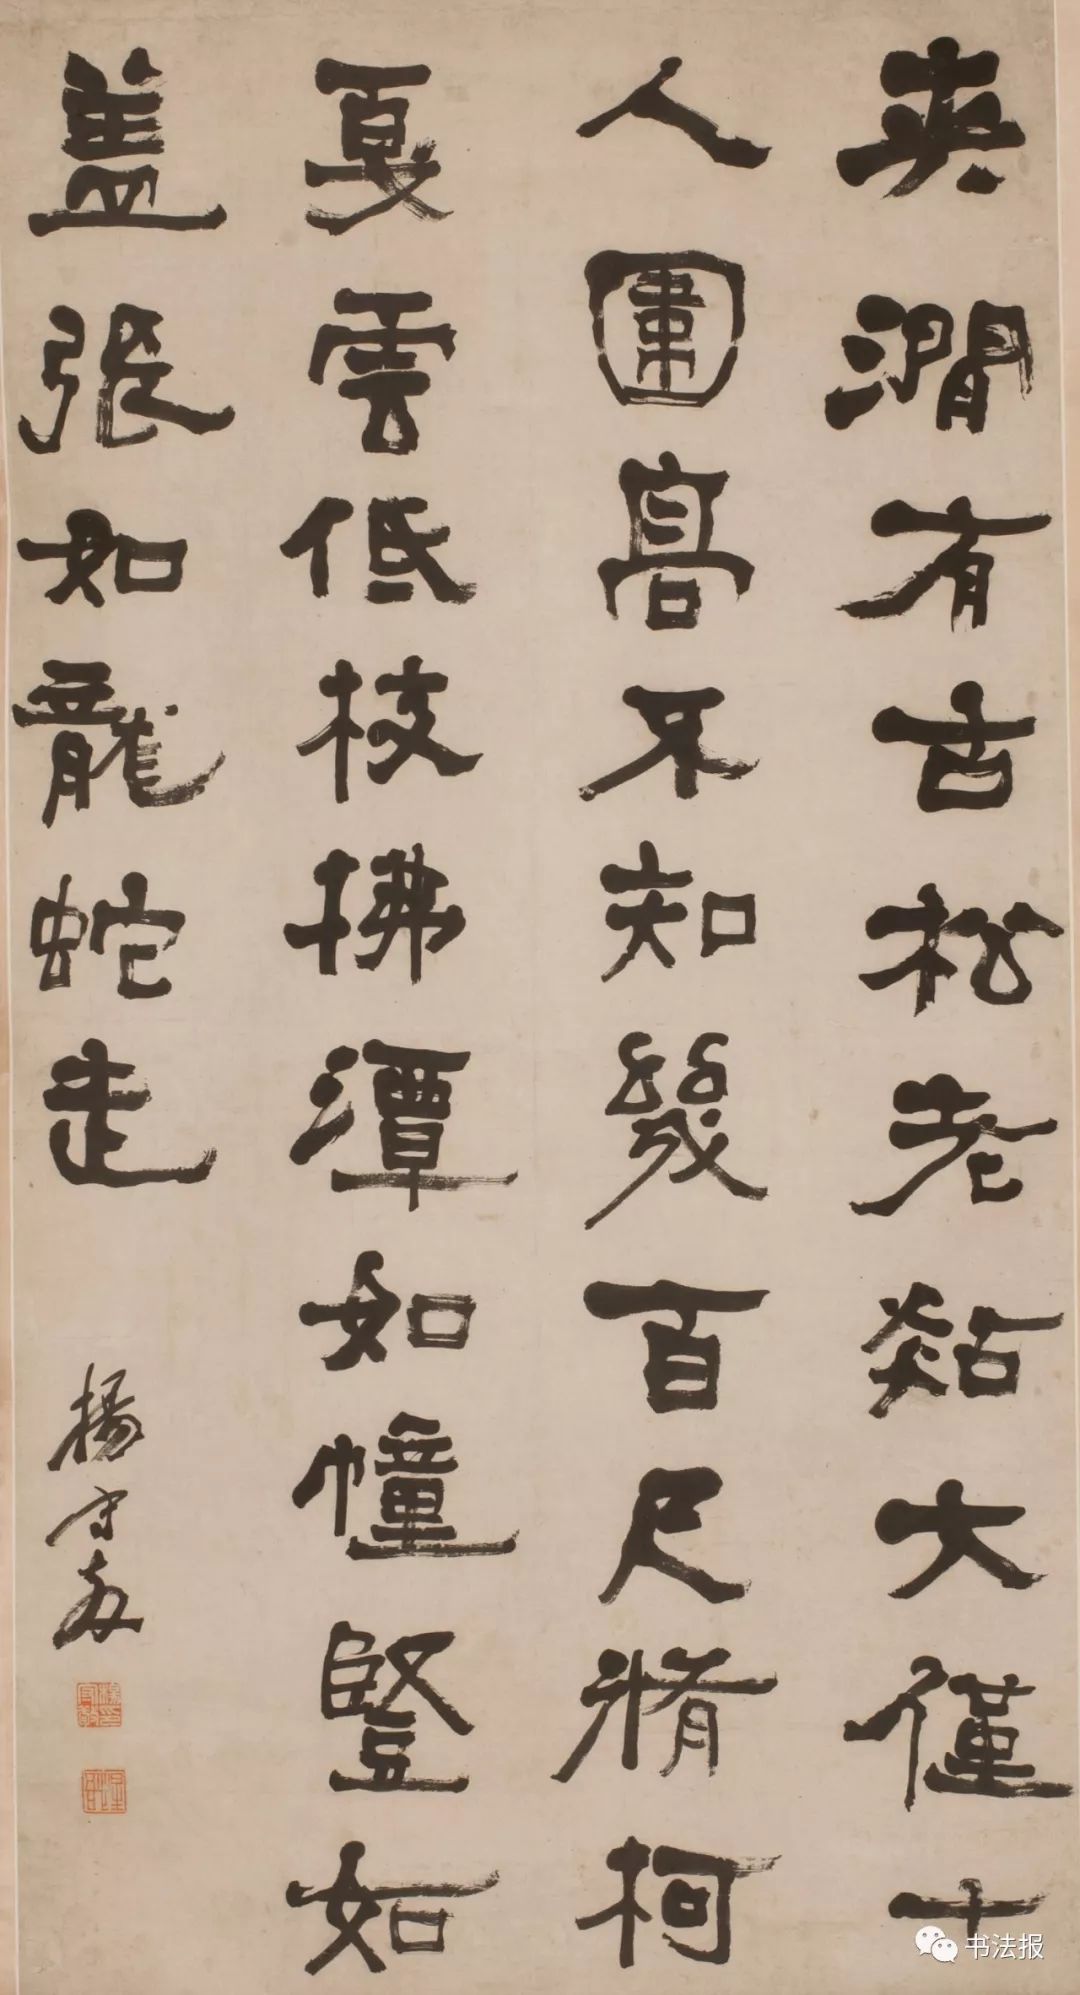 夾澗有古松老煔大僅十
人圍高不知幾百尺脩柯
戛雲低枝拂潭如幢豎如
盖張如龍蛇走
楊守敬
书法报